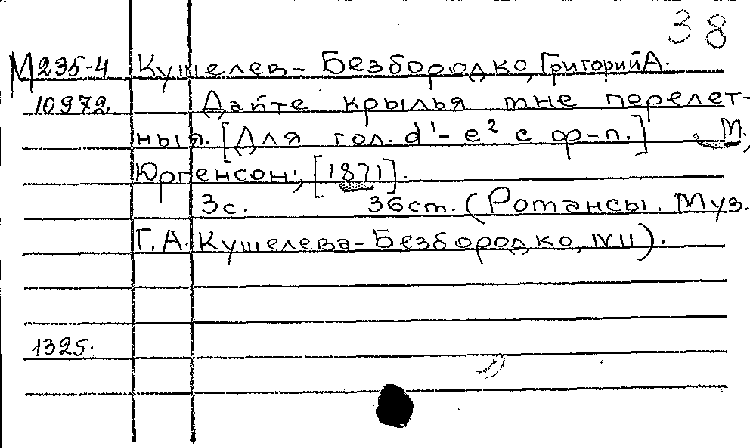 38
М 235-4 Кушелев-Безбородко, Григорий А.
10972. Дайте крылья мне перелет-
ныя. [Для гол. d¹-e² с ф-п.] М.,
Юргенсон, [1871].
3с. 36см. (Романсы. Муз.
Г. А. Кушелева-Безбородко, N 11).
1325.